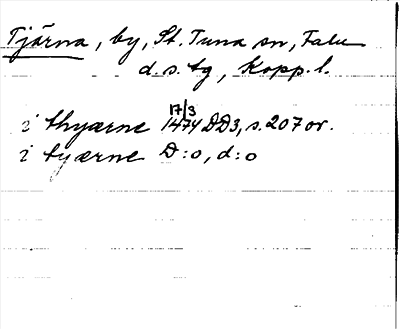 Tjärna, by, St. Tuna sn, Falu
d.s. tg, Kopp. l.
17/3
i thyærne 1474 DD3, s. 207 or.
i tyærne D:o, d:o